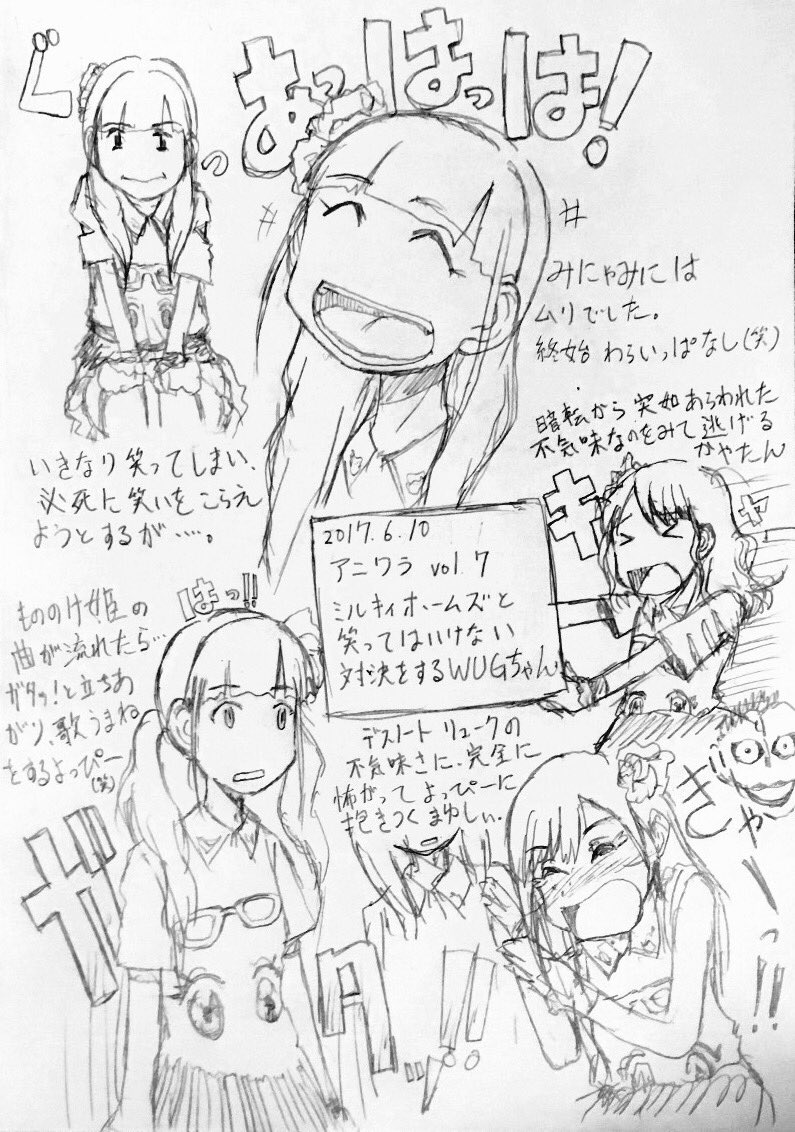 ぐっ
あっはっは!
みにゃみには
ムリでした。
終始 わらいっぱなし(笑)
いきなり笑ってしまい、
必死に笑いをこらえ
ようとするが……。
暗転から 突如あらわれた
不気味なのをみて逃げる
かやたん
キャー
2017.6.10
アニワラ vol.7
ミルキィホームズと
笑ってはいけない
対決をするWUGちゃん
はっ!!
もののけ姫の
曲が流れたら…
ガタッ!と立ちあ
がり、歌うまね
をするよっぴー
(笑)
ガタッ!!
デスノート リュークの
不気味さに、完全に
怖がって よっぴーに
抱きつく まゆしぃ.
きゃーっ!!